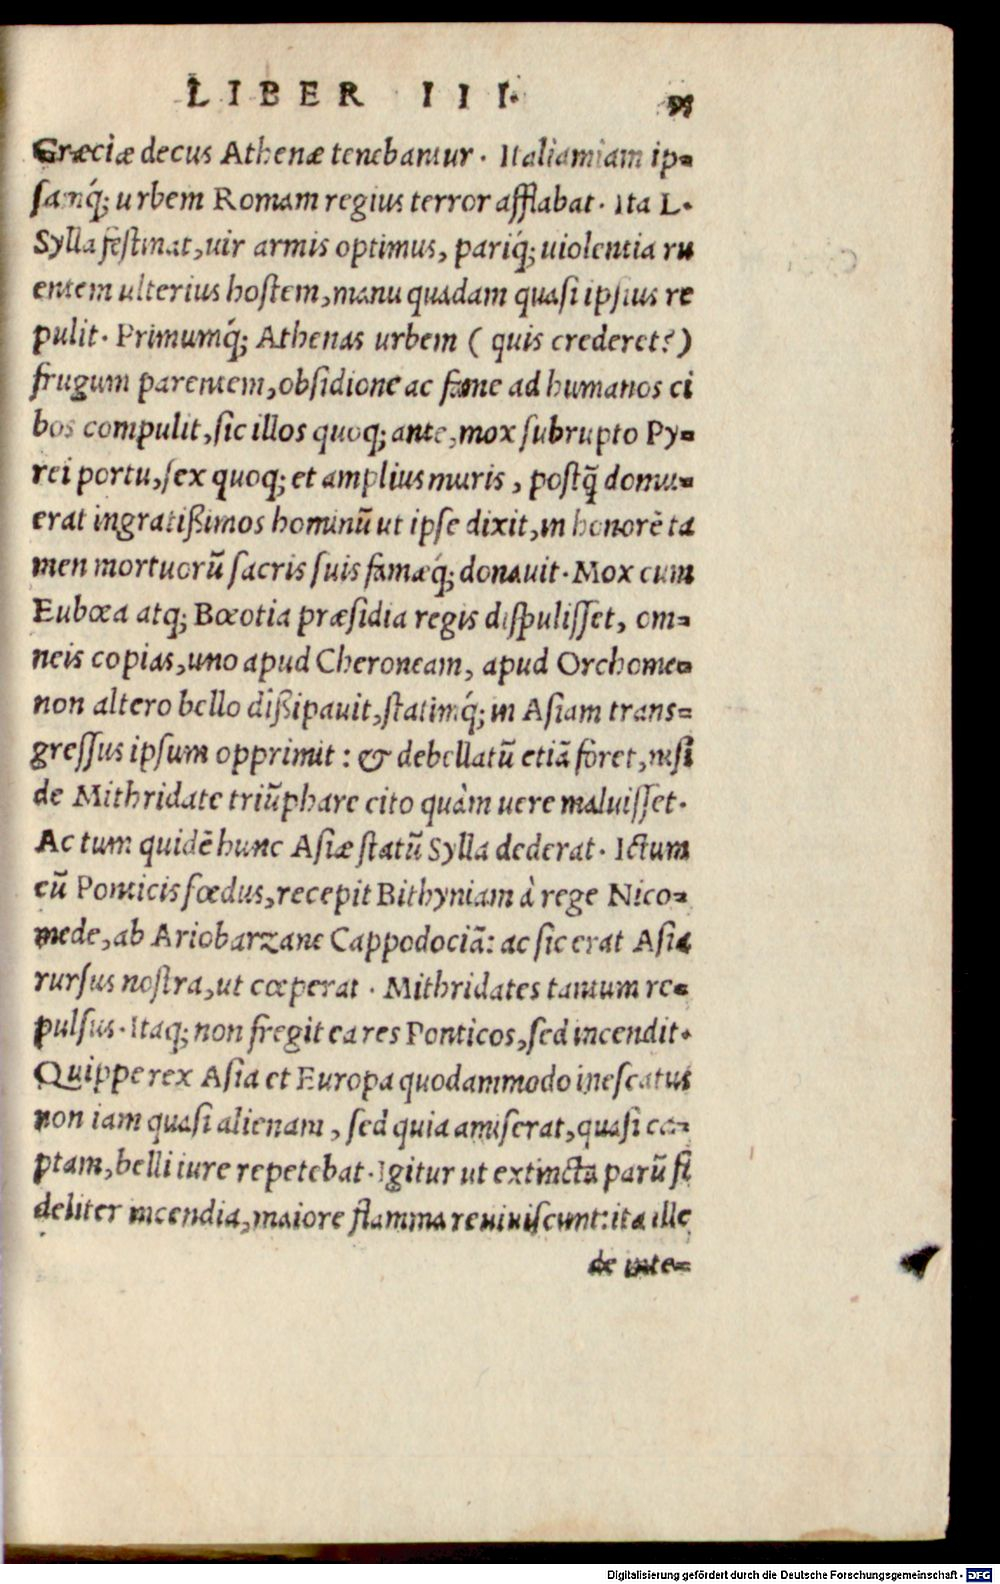 LIBER III.
Græciæ decus Athenæ tenebantur. Italiam iam ip-
ſamq́; urbem Romam regius terror afflabat. Ita L.
Sylla feſtinat, uir armis optimus, pariq́; uiolentia ru
entem ulterius hoſtem, manu quadam quaſi ipſius re
pulit. Primumq́; Athenas urbem ( quis crederet?)
frugum parentem, obſidione ac fame ad humanos ci
bos compulit, ſic illos quoq; ante, mox ſubrupto Py-
rei portu, ſex quoq; et amplius muris, poſtq̃ domu-
erat ingratißimos hominũ ut ipſe dixit, in honorẽ ta
men mortuorũ ſacris ſuis famæq́; donauit. Mox cum
Eubœa atq; Bœotia præſidia regis diſpuliſſet, om-
neis copias, uno apud Cheroneam, apud Orchome-
non altero bello dißipauit, ſtatimq́; in Aſiam trans-
greſſus ipſum opprimit : & debellatũ etiã foret, niſi
de Mithridate triũphare cito quàm uere maluiſſet.
Ac tum quidẽ hunc Aſiæ ſtatũ Sylla dederat. Ictum
cũ Ponticis fœdus, recepit Bithyniam à rege Nico-
mede, ab Ariobarzane Cappodociã: ac ſic erat Aſia
rurſus noſtra, ut cœperat . Mithridates tantum re-
pulſus. Itaq; non fregit ea res Ponticos, ſed incendit.
Quippe rex Aſia et Europa quodammodo ineſcatus
non iam quaſi alienam , ſed quia amiſerat, quaſi ca-
ptam, belli iure repetebat. Igitur ut extincta parũ fi
deliter incendia, maiore flamma reuiuiſcunt: ita ille
de inte-
Digitalisierung gefördert durch die Deutsche Forschungsgemeinschaft - DFG